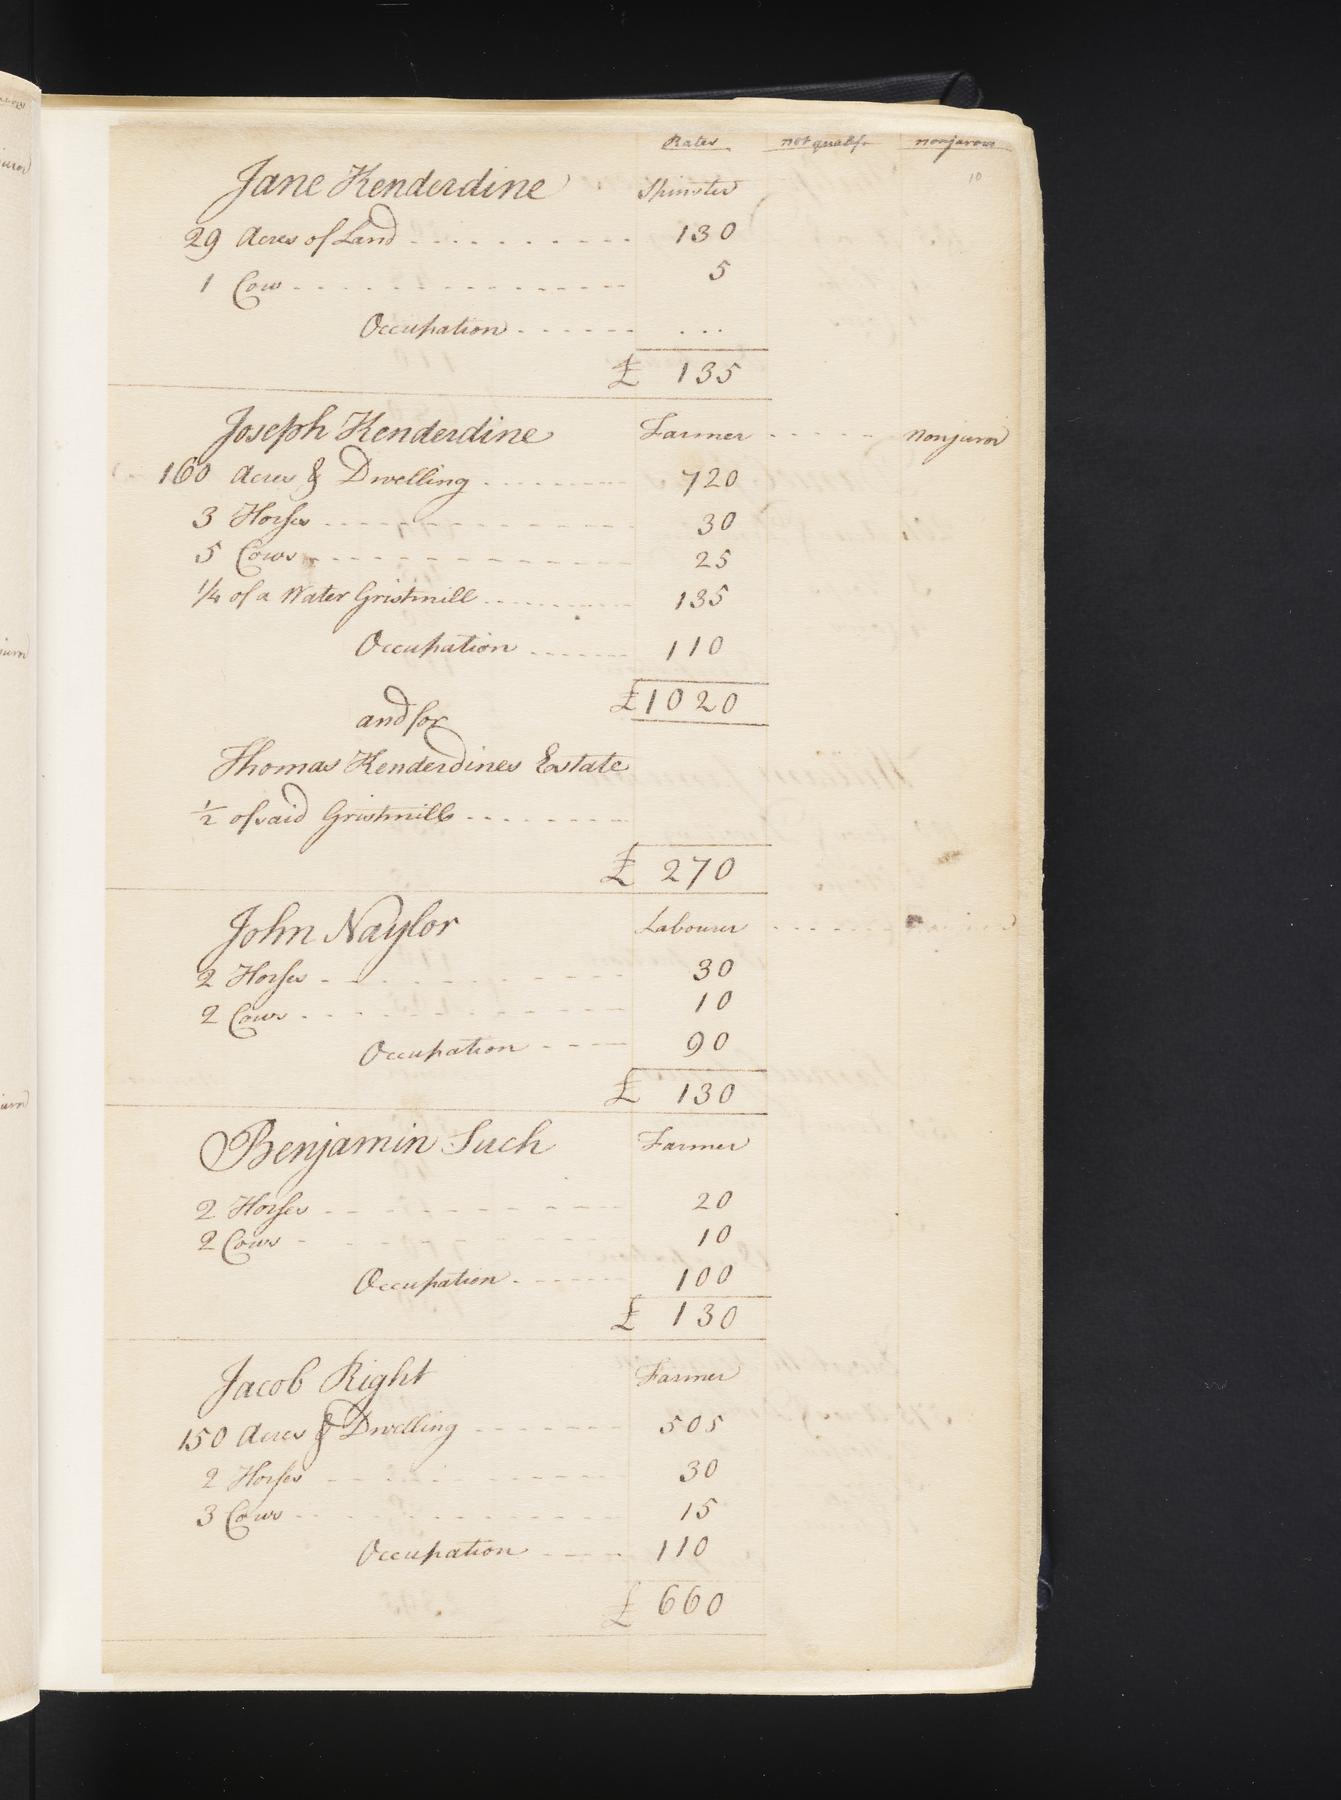 Rates not qualif. nonjurors
10
Jane Kenderdine Spinster
29 Acres of Land 130
1 Cow 5
Occupation ...
£ 135
Joseph Kenderdine Farmer nonjuror
160 Acres & Dwelling 720
3 Horses 30
5 Cows 25
1/4 of a Water Gristmill 135
Occupation 110
£ 1020
and for
Thomas Kenderdines Estate
1/2 of said Gristmill
£ 270
John Naylor Labourer
2 Horses 30
2 Cows 10
Occupation 90
£ 130
Benjamin Such Farmer
2 Horses 20
2 Cows 10
Occupation 100
£ 130
Jacob Right Farmer
150 Acres & Dwelling 505
2 Horses 30
3 Cows 15
Occupation 110
£ 660